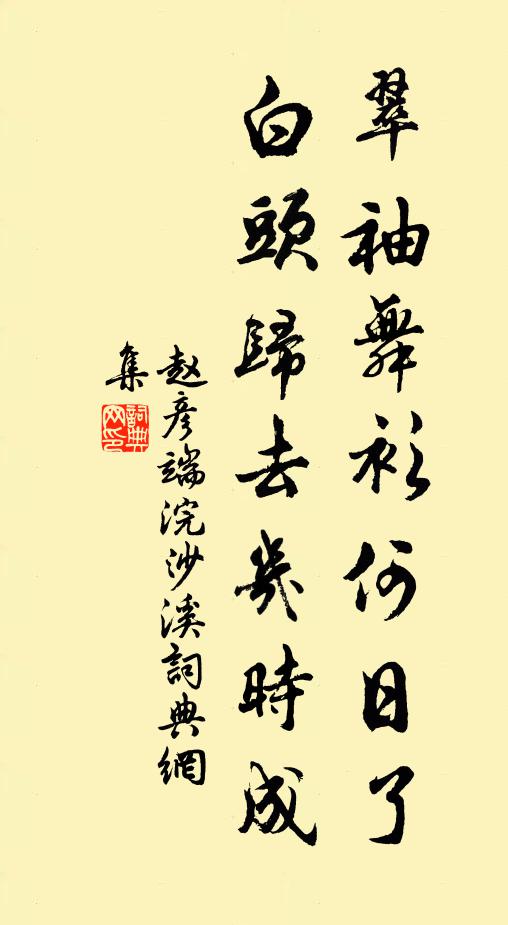 翠袖舞衫何日了
白頭歸去幾時成
赵彦端浣沙溪詞典網
集
詞典網印